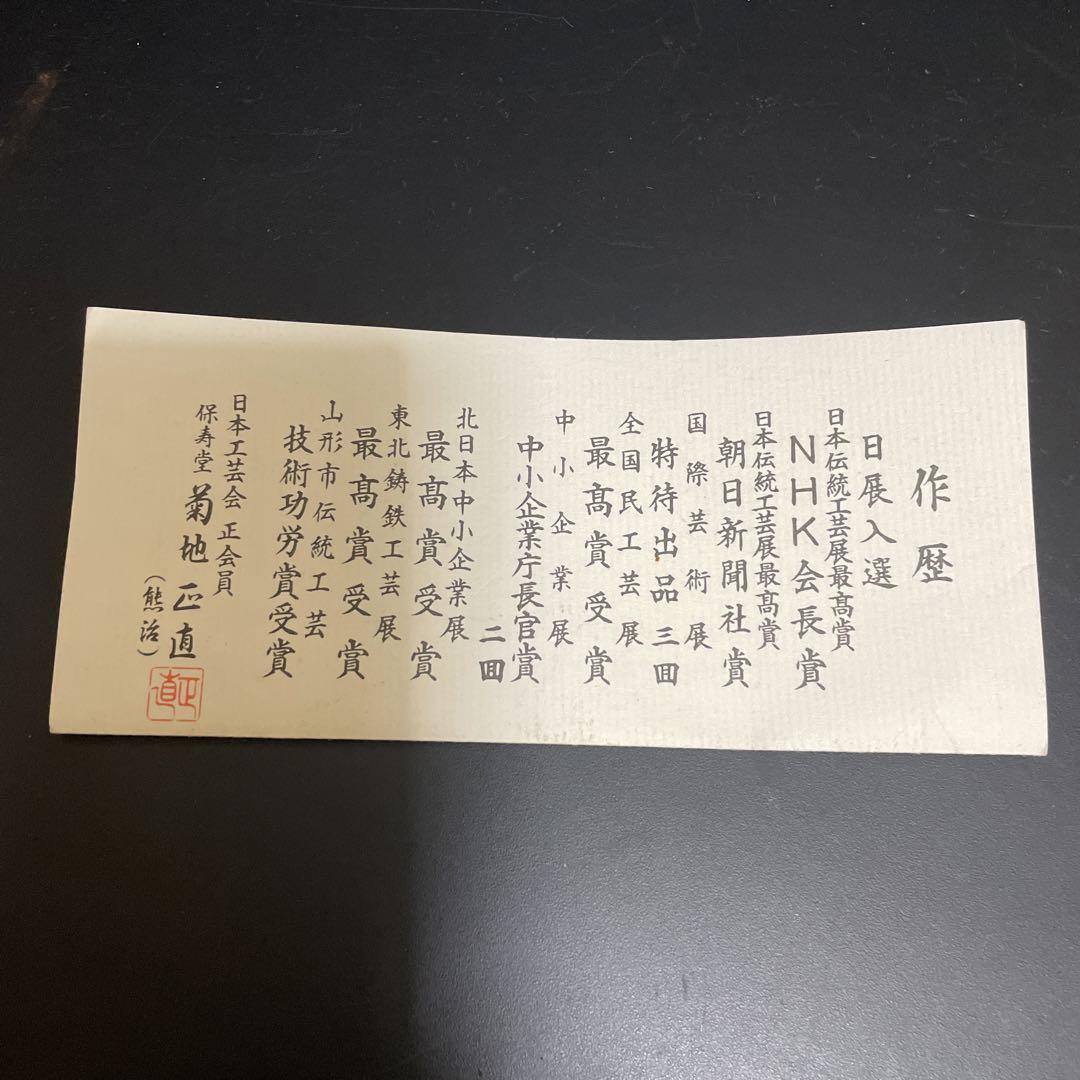 作歴
日展入選
日本伝統工芸展最高賞
NHK会長賞
日本伝統工芸展最高賞
朝日新聞社賞
国際芸術展
特待出品三回
全国民工芸展
最高賞受賞
中小企業展
中小企業庁長官賞
二回
北日本中小企業展
最高賞受賞
東北鋳鉄工芸展
最高賞受賞
山形市伝統工芸
技術功労賞受賞
日本工芸会正会員
保寿堂 菊地正直
(熊治)
正直